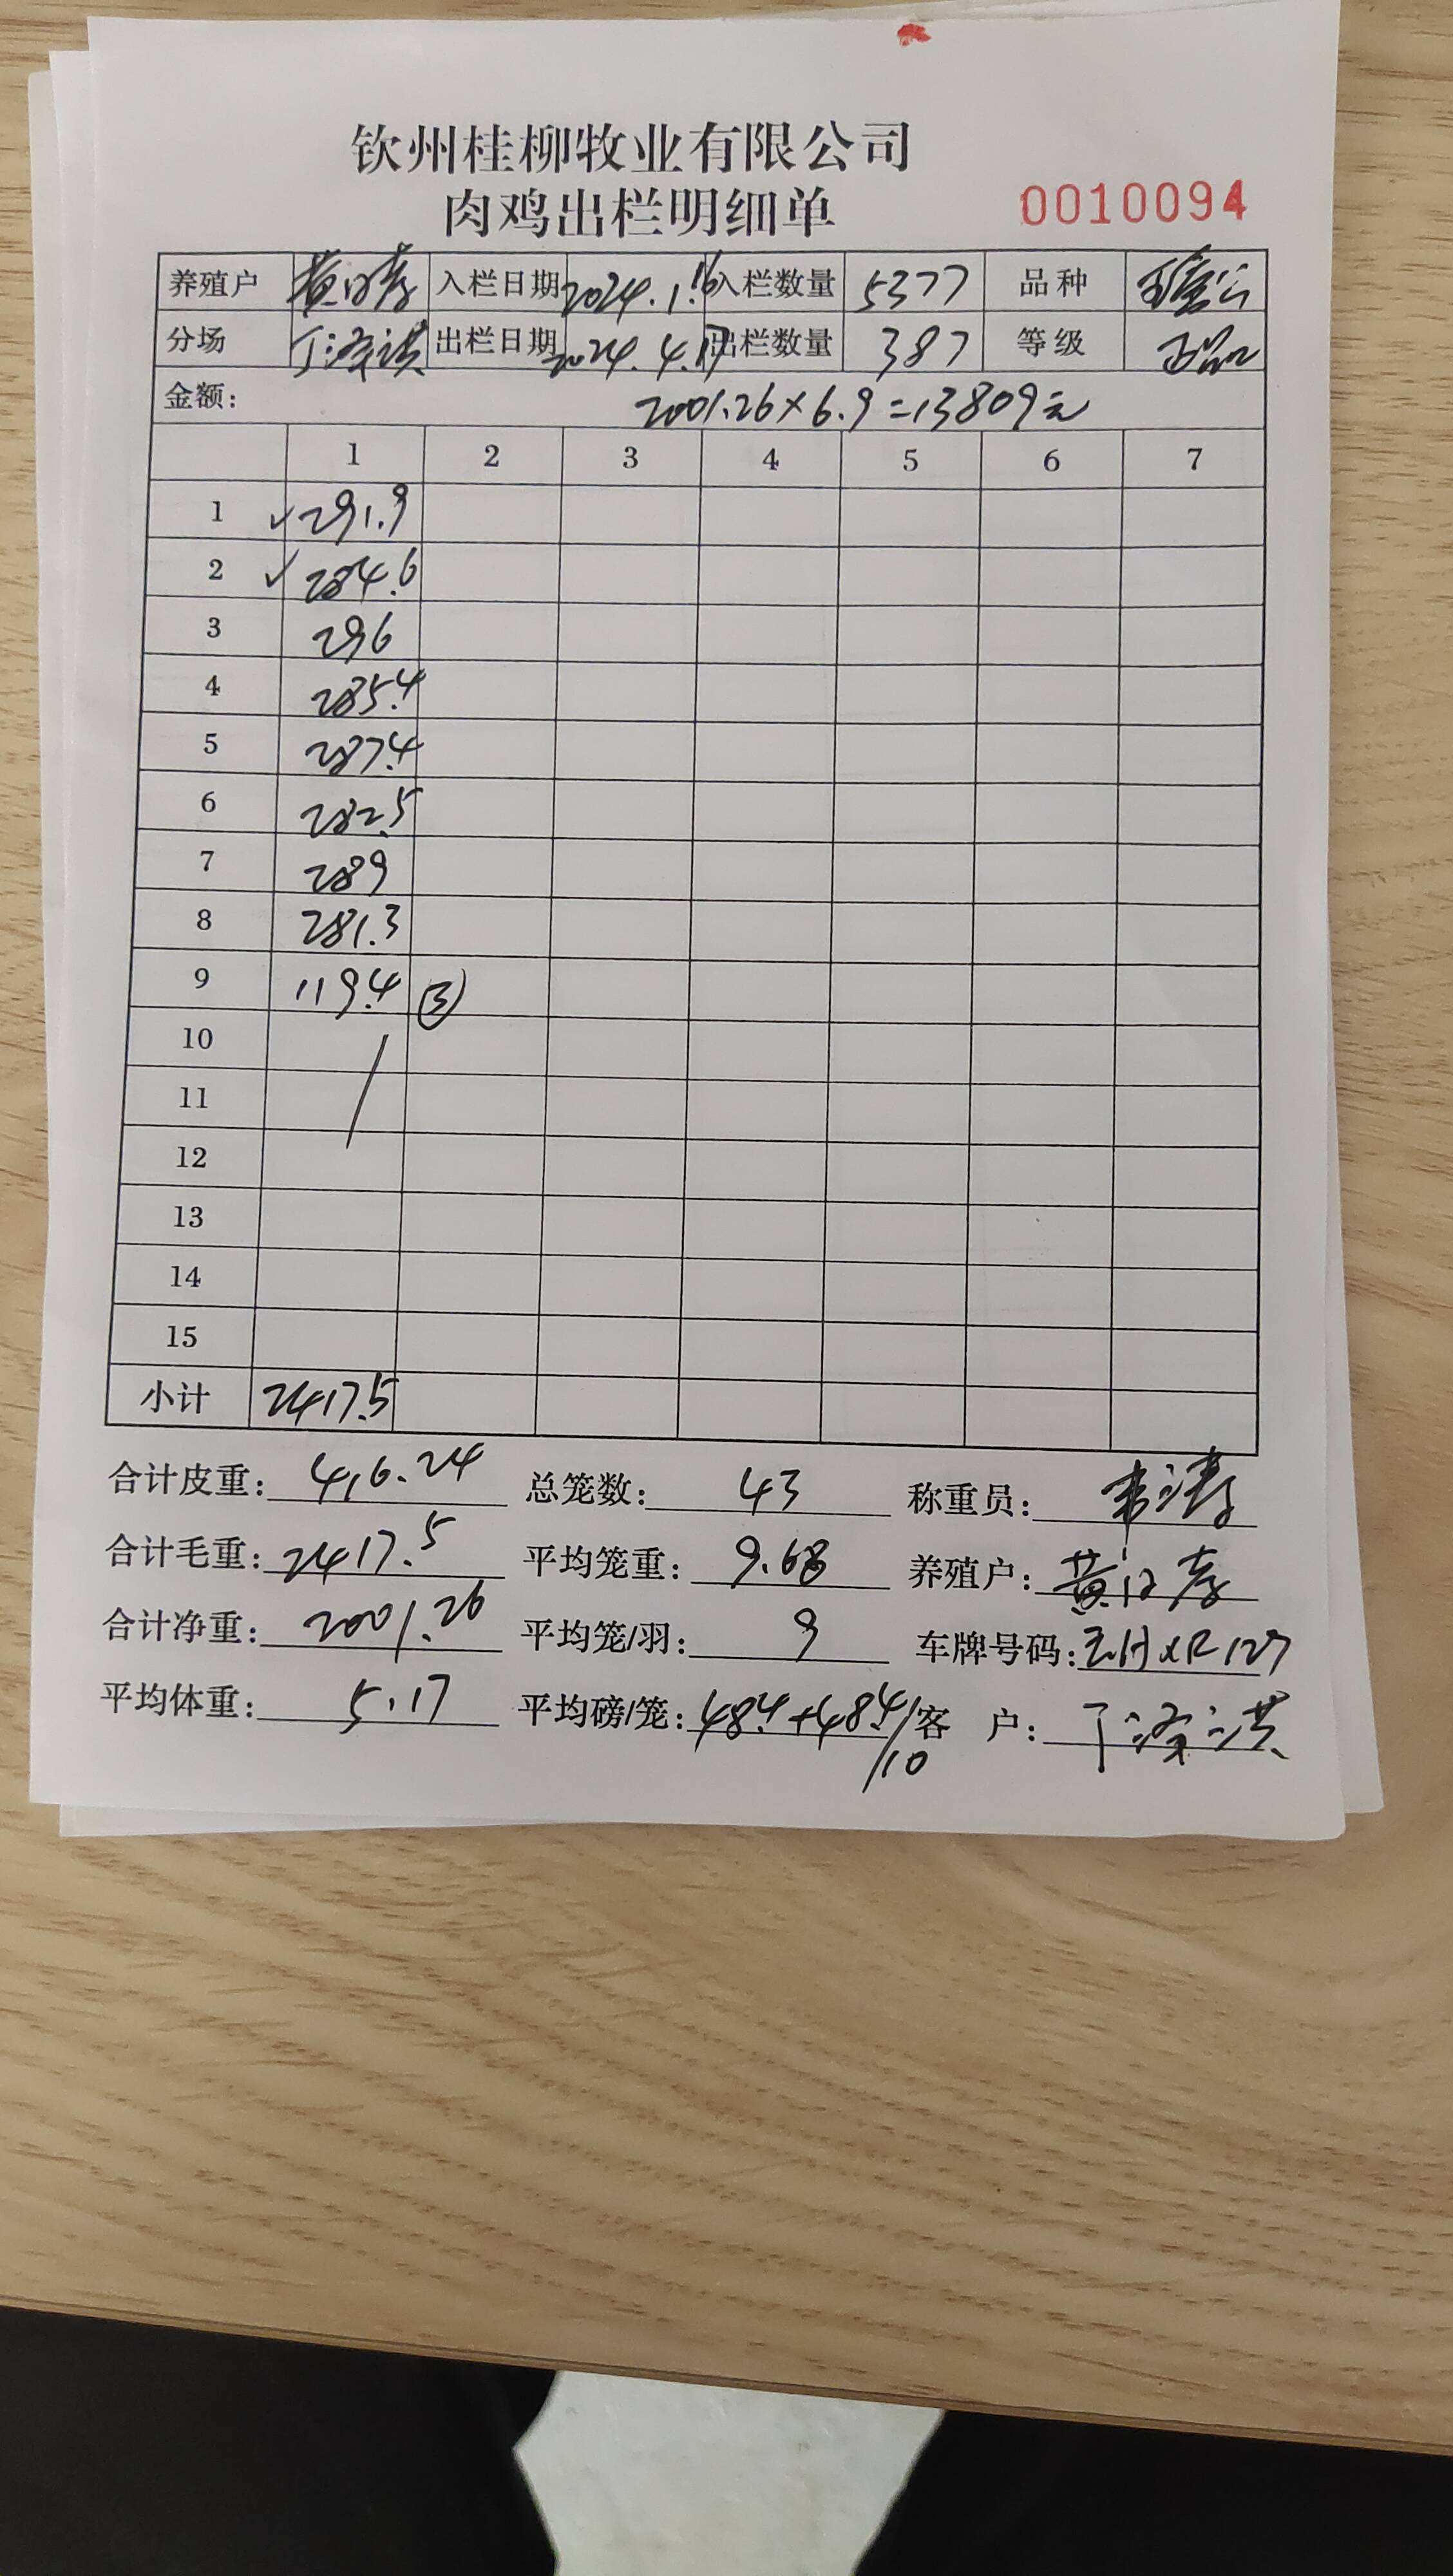 钦州桂柳牧业有限公司
肉鸡出栏明细单
0010094
养殖户 入栏日期 2024.1.16 入栏数量 5377 品种
分场 丁泽洪 出栏日期 2024.4.17 出栏数量 387 等级 正品
金额: 2001.26×6.9=13809元
1 2 3 4 5 6 7
1 ✓291.9
2 ✓284.6
3 296
4 285.4
5 287.4
6 282.5
7 289
8 281.3
9 119.4 ③
10
11
12
13
14
15
小计 2417.5
合计皮重: 416.24 总笼数: 43 称重员:
合计毛重: 2417.5 平均笼重: 9.68 养殖户:
合计净重: 2001.26 平均笼/羽: 9 车牌号码:
平均体重: 5.17 平均磅/笼: 48.4+48.4/10 客 户: 丁泽洪